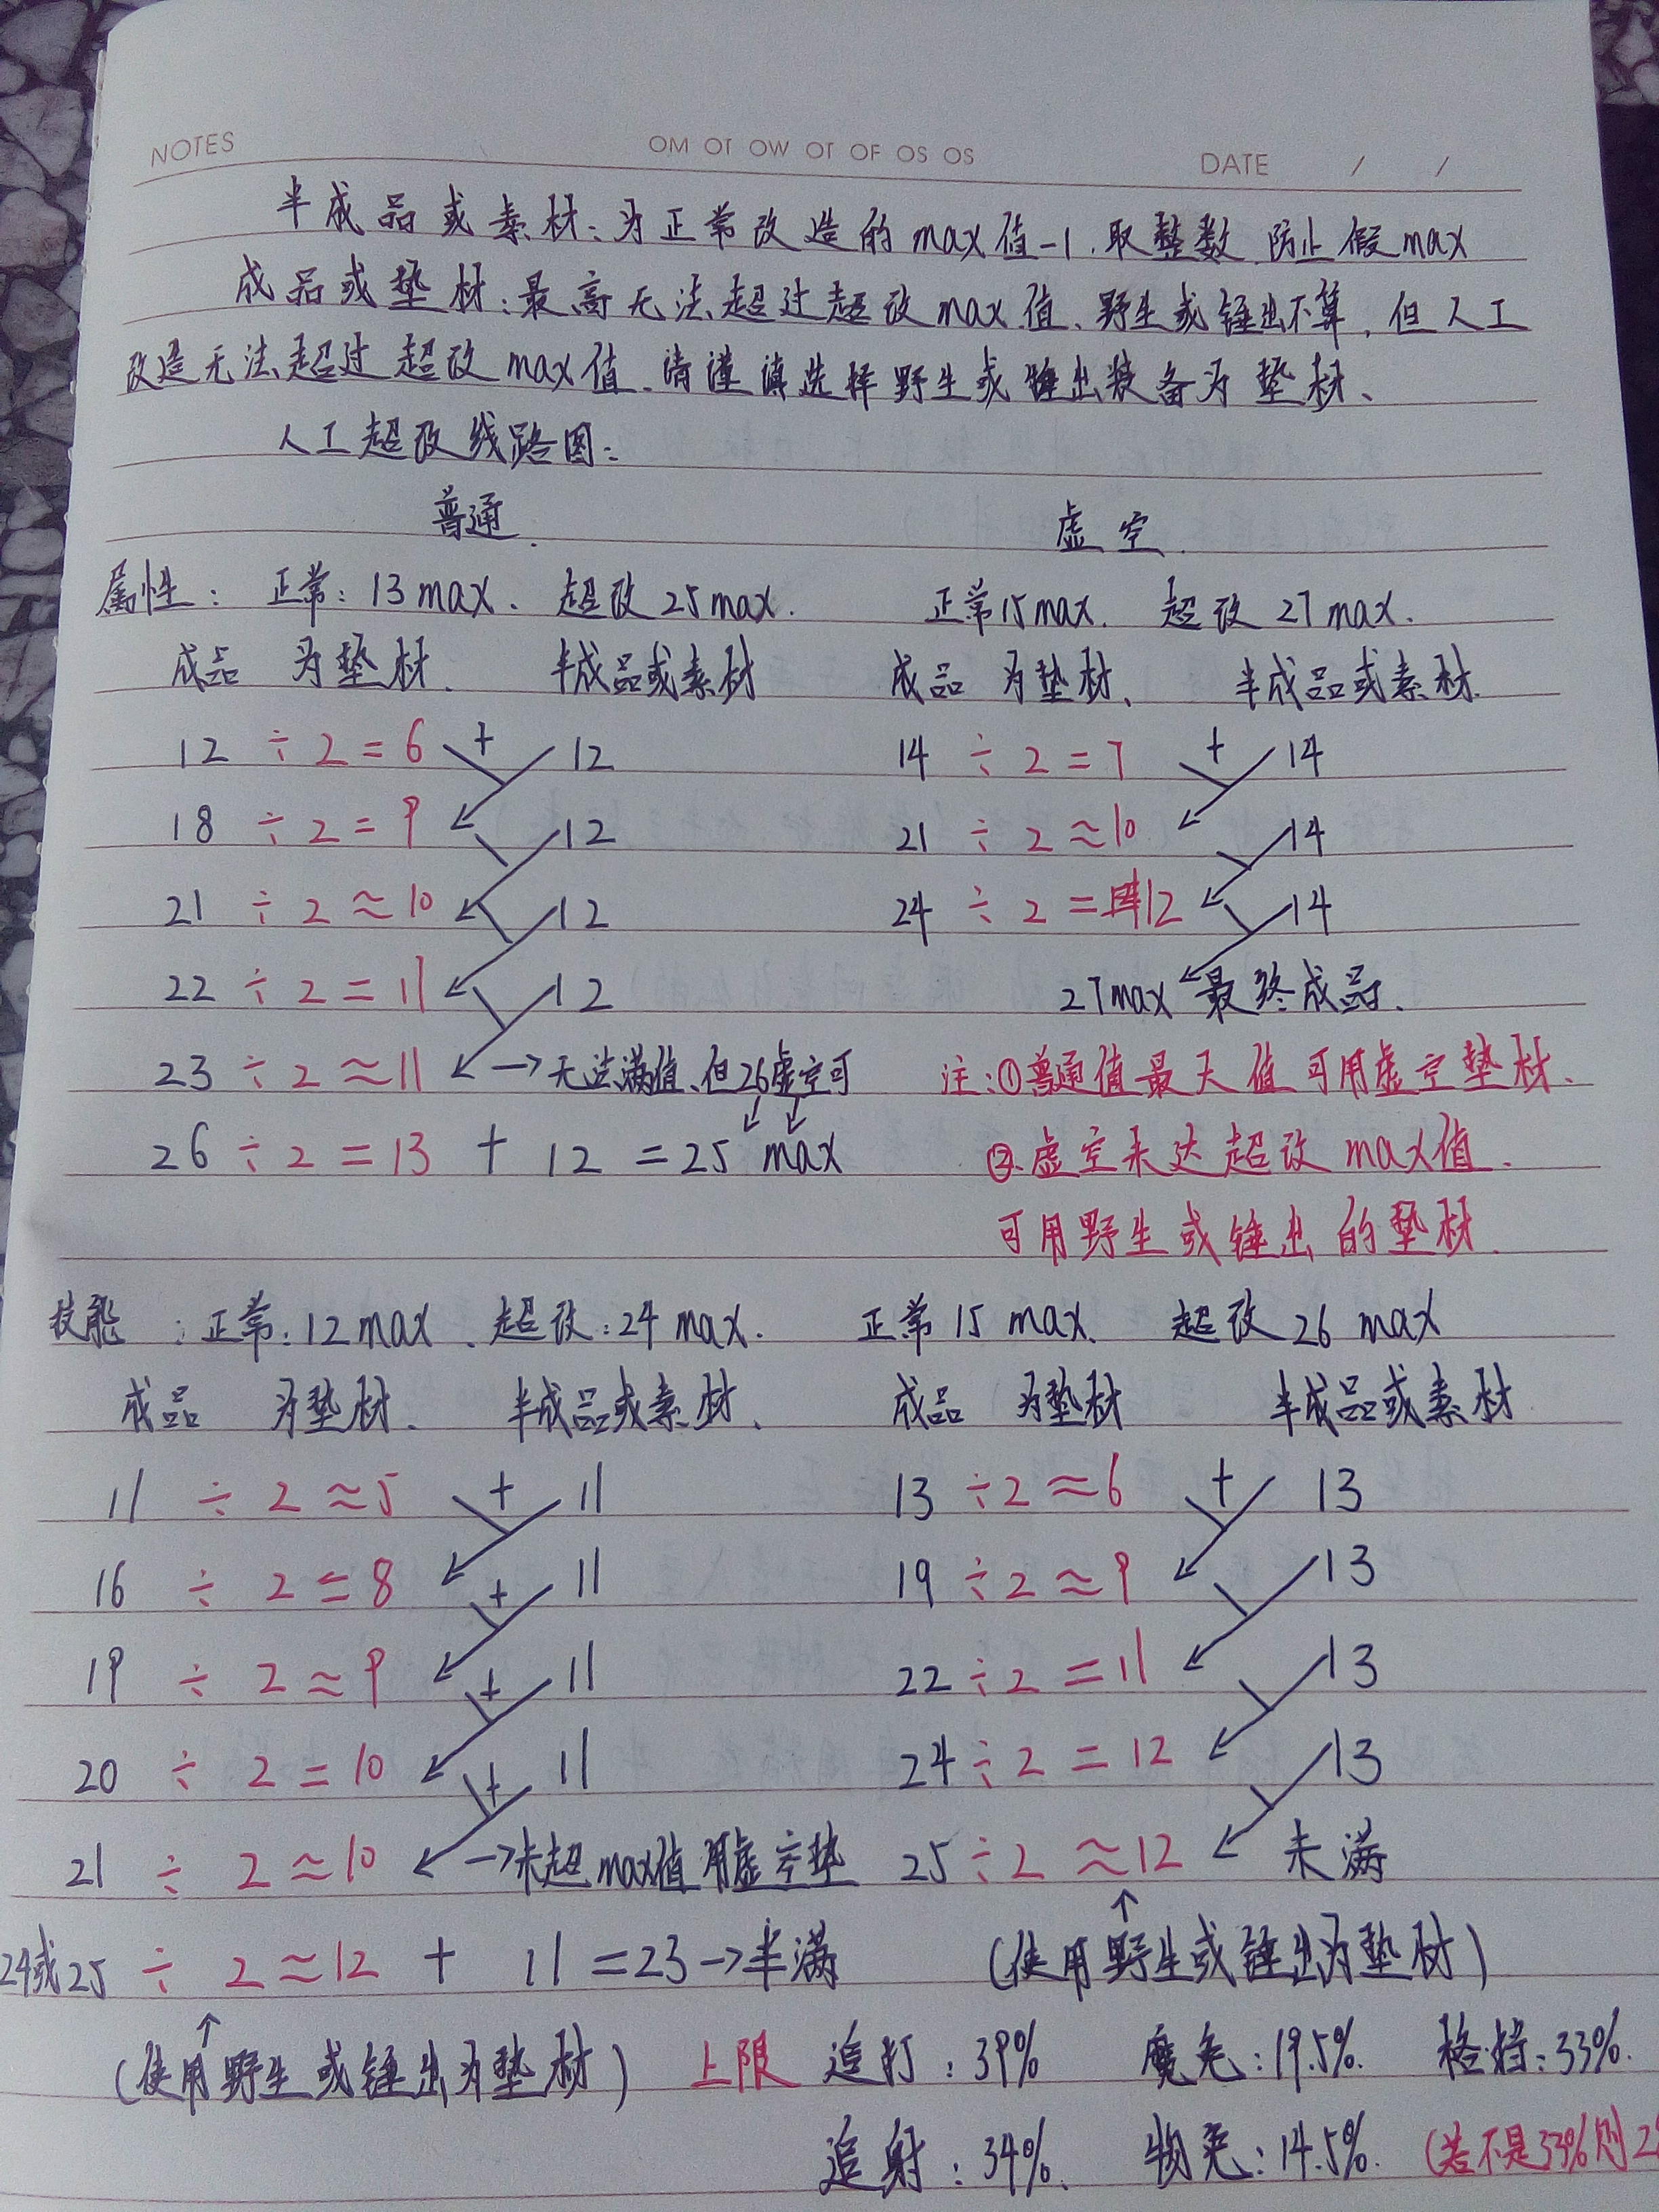 NOTES OM OT OW OT OF OS OS DATE / /
半成品或素材:为正常改造的max值-1.取整数 防止假max
成品或垫材:最高无法超过超改max值、野生或锤出不算,但人工
改造无法超过超改max值、请谨慎选择野生或锤出装备为垫材、
人工超改线路图:
普通. 虚空.
属性: 正常:13max、 超改25max. 正常15max. 超改27max.
成品 为垫材、 半成品或素材 成品 为垫材、 半成品或素材.
12 ÷ 2 = 6 + 12 14 ÷ 2 = 7 + 14
18 ÷ 2 = 9 12 21 ÷ 2 ≈ 10 14
21 ÷ 2 ≈ 10 12 24 ÷ 2 = 12 14
22 ÷ 2 = 11 12 27max 最终成品.
23 ÷ 2 ≈ 11 → 无法满值、但26虚空可 注:①普通值最大值可用虚空垫材、
26 ÷ 2 = 13 + 12 = 25 max ②.虚空未达超改max值.
可用野生或锤出的垫材.
技能:正常:12max、超改:24max. 正常15max、 超改26max
成品 为垫材、 半成品或素材、 成品 为垫材 半成品或素材
11 ÷ 2 ≈ 5 + 11 13 ÷ 2 ≈ 6 + 13
16 ÷ 2 = 8 + 11 19 ÷ 2 ≈ 9 13
19 ÷ 2 ≈ 9 + 11 22 ÷ 2 = 11 13
20 ÷ 2 = 10 + 11 24 ÷ 2 = 12 13
21 ÷ 2 ≈ 10 → 未超max值用虚空垫 25 ÷ 2 ≈ 12 未满
24或25 ÷ 2 ≈ 12 + 11 = 23 → 半满 (使用野生或锤出为垫材)
(使用野生或锤出为垫材) 上限 追打:39% 魔免:19.5%. 格挡:33%.
追射:34%. 物免:14.5%. (若不是33%则2